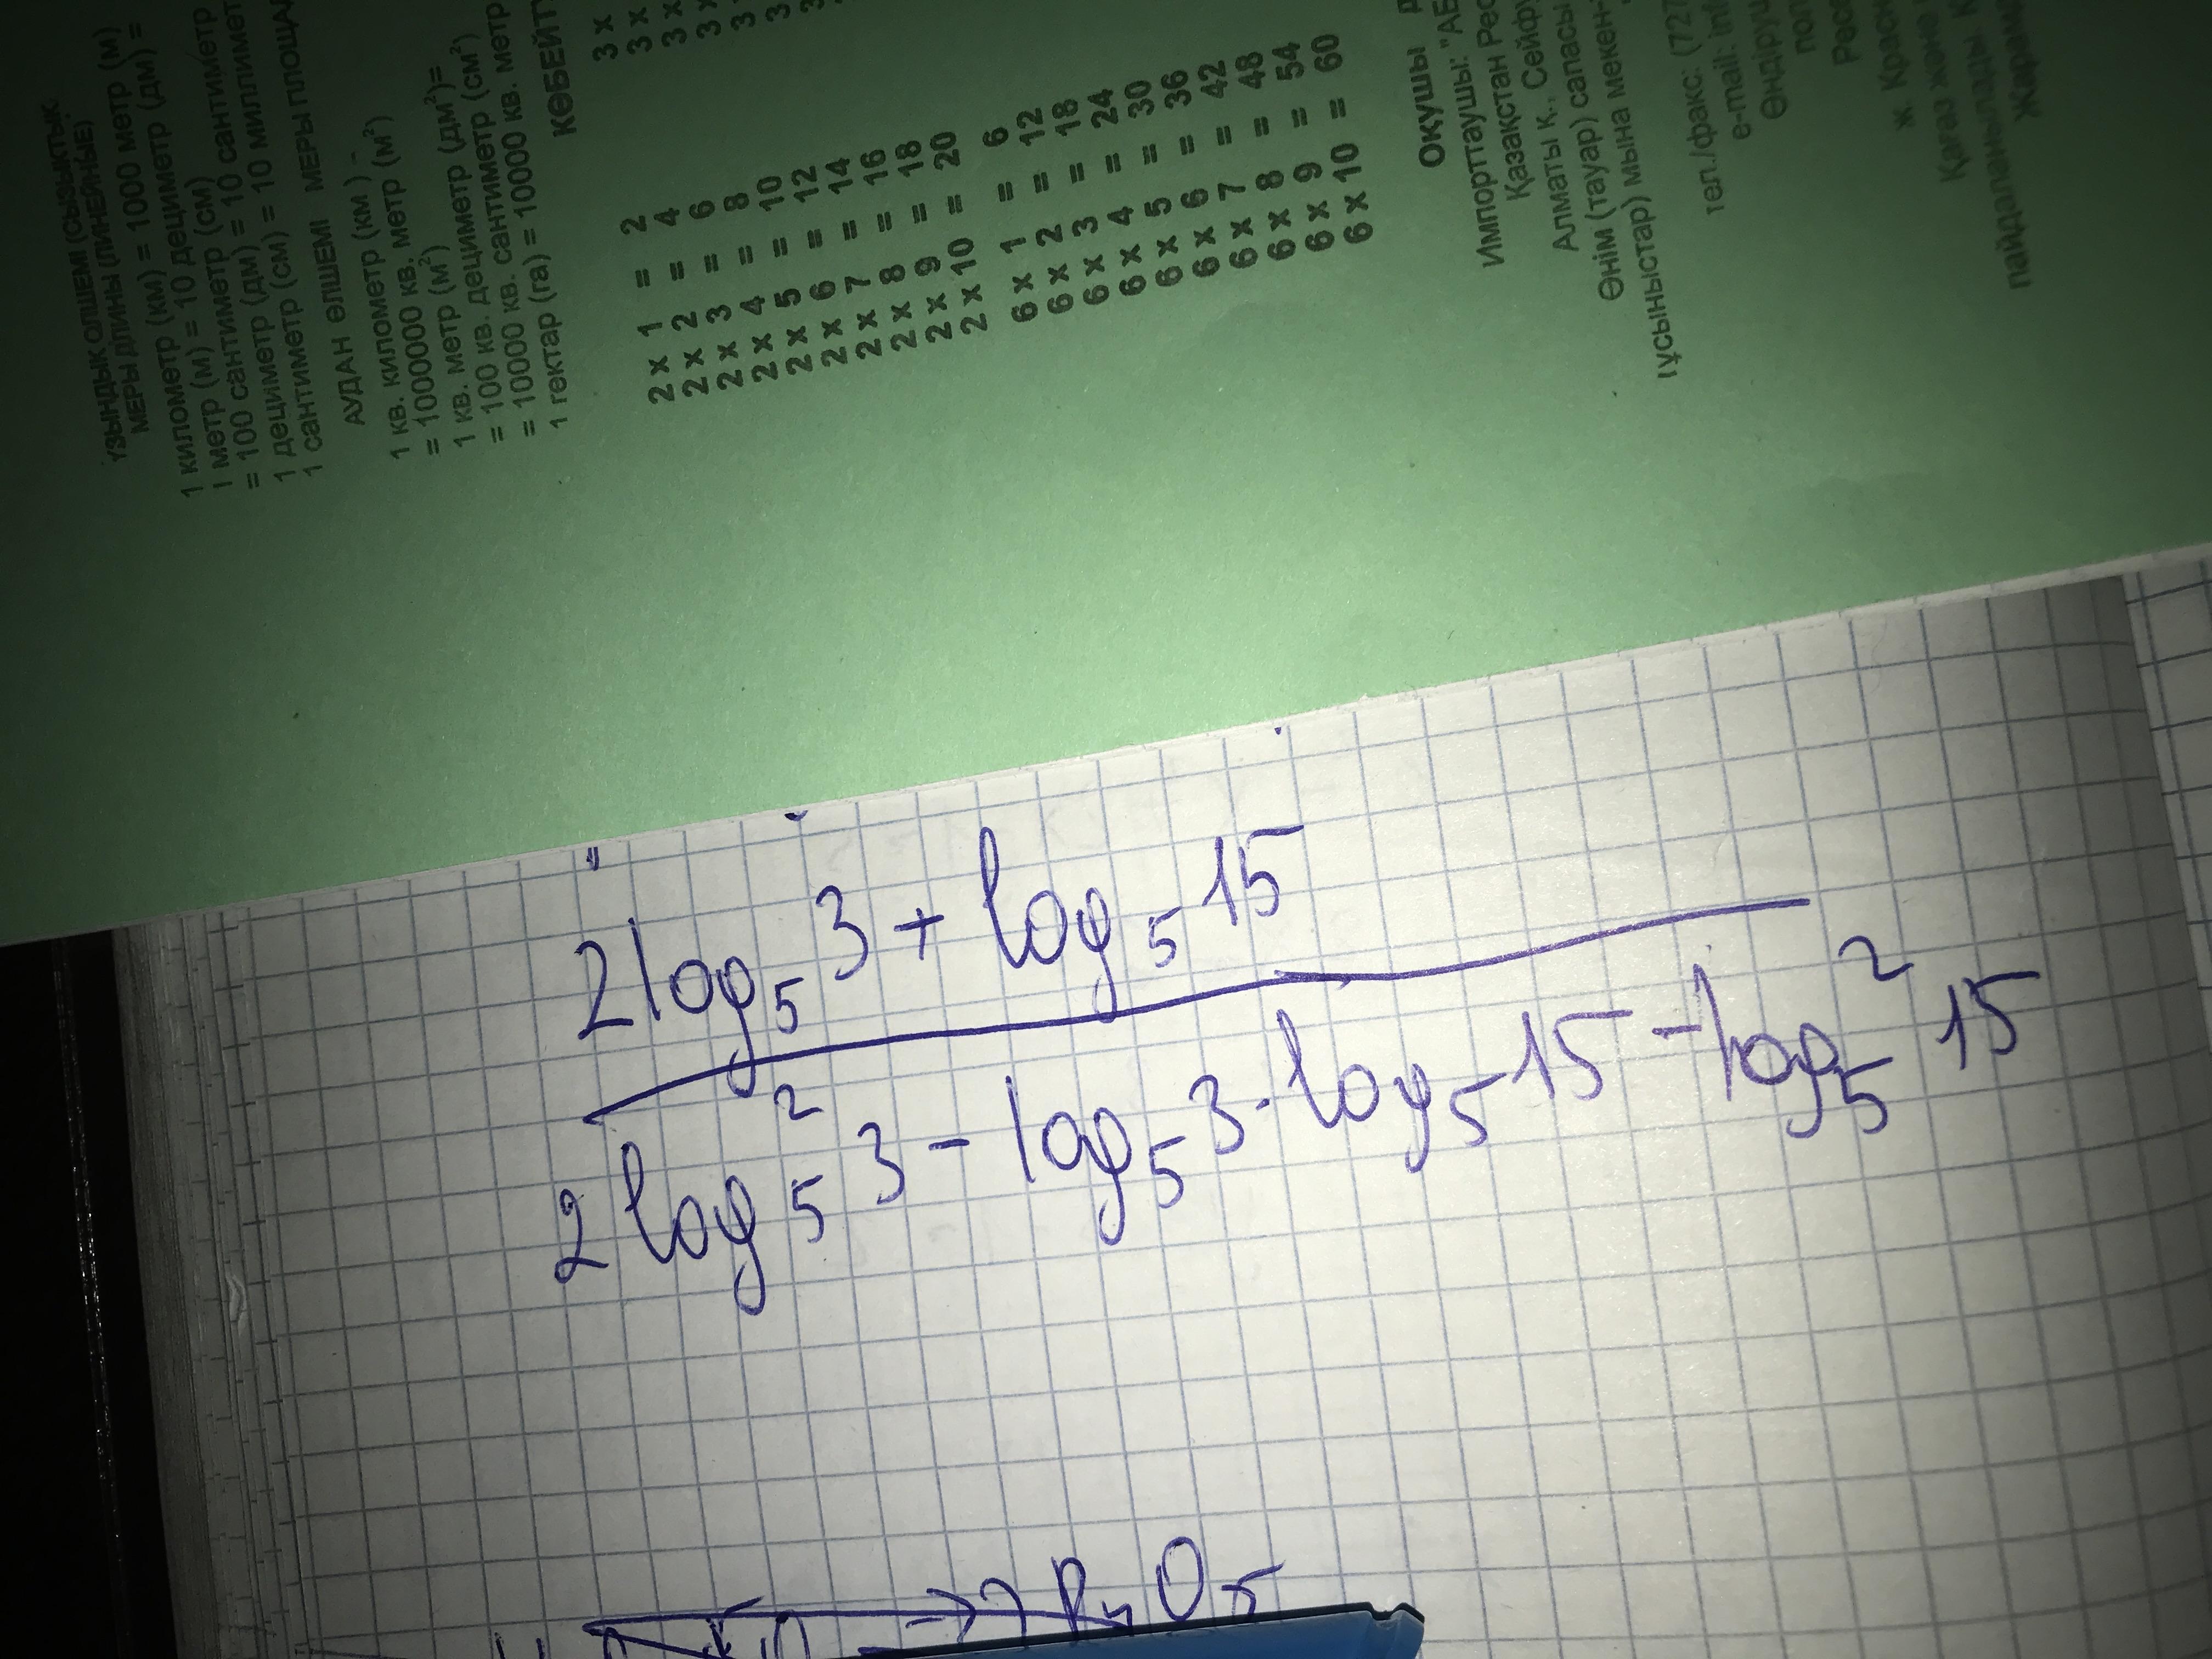 ҰЗЫНДЫҚ ӨЛШЕМІ (СЫЗЫҚТЫҚ
МЕРЫ ДЛИНЫ (ЛИНЕЙНЫЕ)
1 километр (км) = 1000 метр (м)
1 метр (м) = 10 дециметр (дм) =
= 100 сантиметр (см)
1 дециметр (дм) = 10 сантиметр
1 сантиметр (см) = 10 миллимет
АУДАН ӨЛШЕМІ МЕРЫ ПЛОЩА
1 кв. километр (км )
= 1000000 кв. метр (м²)
1 кв. метр (м²)
= 100 кв. дециметр (дм²)=
= 10000 кв. сантиметр (см²)
1 гектар (га) = 10000 кв. метр
КӨБЕЙТ
2 x 1 = 2
2 x 2 = 4
2 x 3 = 6
2 x 4 = 8
2 x 5 = 10
2 x 6 = 12
2 x 7 = 14
2 x 8 = 16
2 x 9 = 18
2 x 10 = 20
3 x
3 x
3 x
3 x
3
3
3
6 x 1 = 6
6 x 2 = 12
6 x 3 = 18
6 x 4 = 24
6 x 5 = 30
6 x 6 = 36
6 x 7 = 42
6 x 8 = 48
6 x 9 = 54
6 x 10 = 60
Оқушы
Импорттаушы: "АБ
Қазақстан Рес
Алматы қ., Сейфу
Өнім (тауар) сапасы
ұсыныстар) мына мекен-
тел./факс: (727
e-mail: inf
Өндіруш
пол
Ресе
ж. Красн
Қағаз және
пайдаланылады. К
Жарамд
2log₅3 + log₅15
2log₅²3 - log₅3·log₅15 - log₅²15